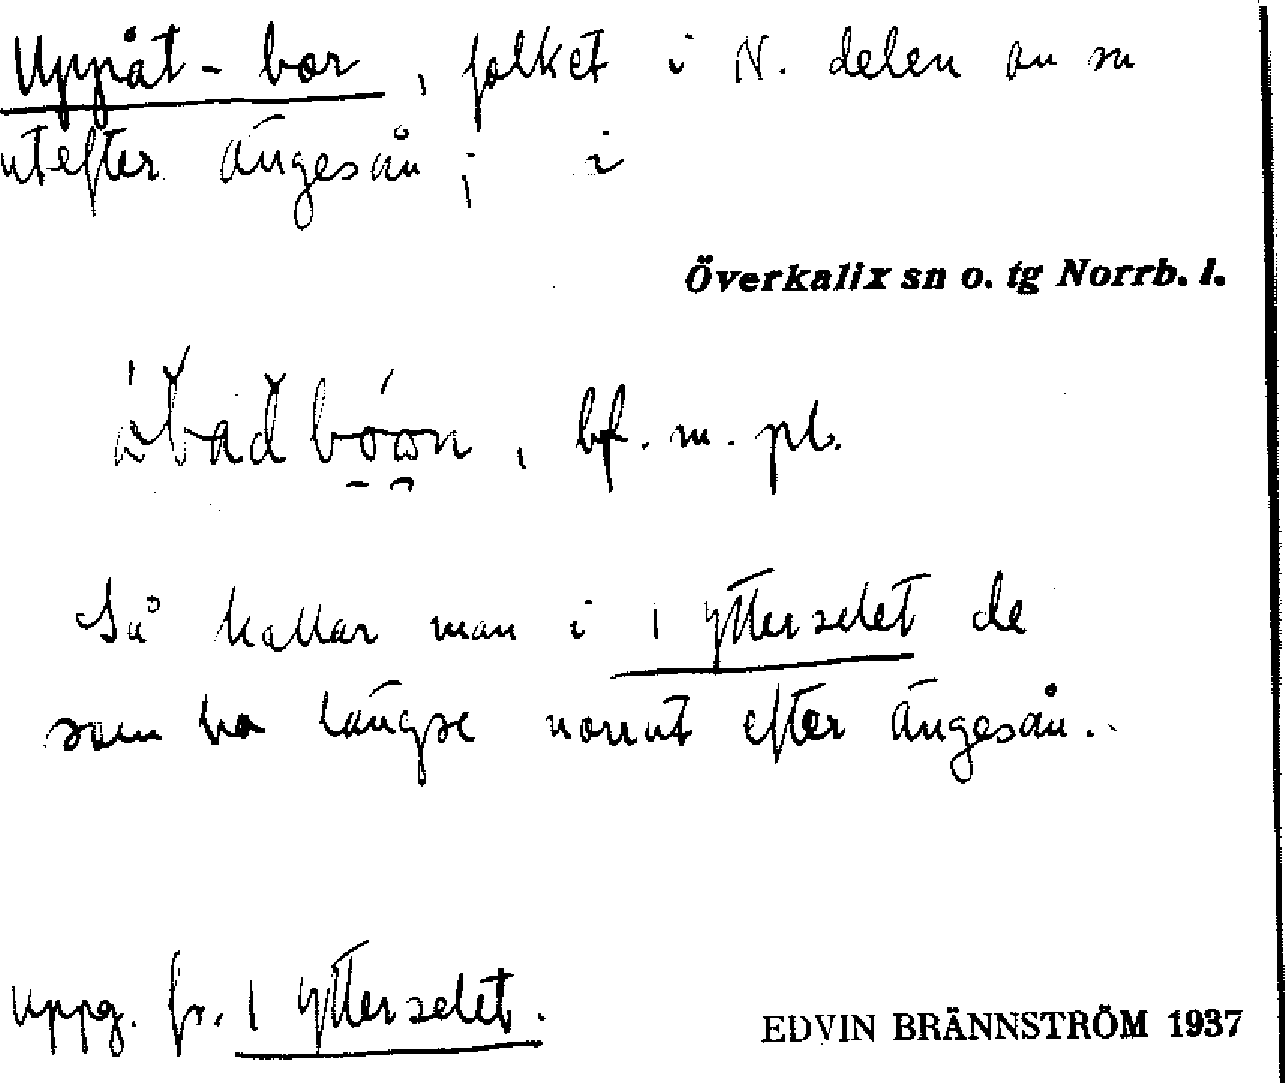 Uppåt-bor, folket i N. delen av sn
utefter ängesån; i
Överkalix sn o. tg Norrb. l.
bf. m. pl.
Så kallar man i Ytterselet de
som bo längse norrut efter ängesån.
uppg. fr. Ytterselet.
EDVIN BRÄNNSTRÖM 1937